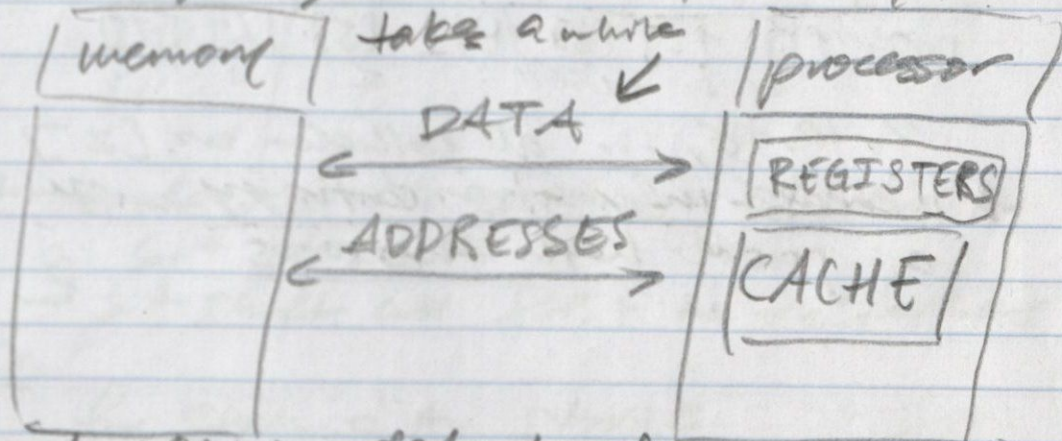 memory
take a while
processor
DATA
REGISTERS
ADDRESSES
CACHE